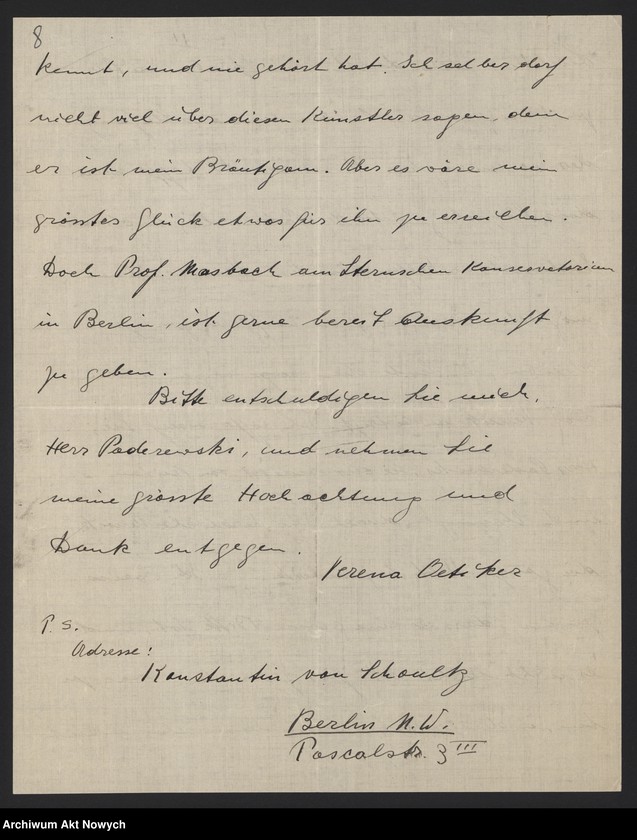 8
kennt, und nie gehört hat. Ich selber darf
nicht viel über diesen Künstler sagen, denn
er ist mein Bräutigam. Aber es wäre mein
grösstes Glück etwas für ihn zu erreichen.
Doch Prof. Masbach am Sternschen Konservatorium
in Berlin, ist gerne bereit Auskunft
zu geben.
Bitte entschuldigen Sie mich,
Herr Paderewski, und nehmen Sie
meine grösste Hochachtung und
Dank entgegen.
Verena Oetiker
P. S.
Adresse:
Konstantin von Schoultz
Berlin N.W.
Pascalstr. 3 III
Archiwum Akt Nowych